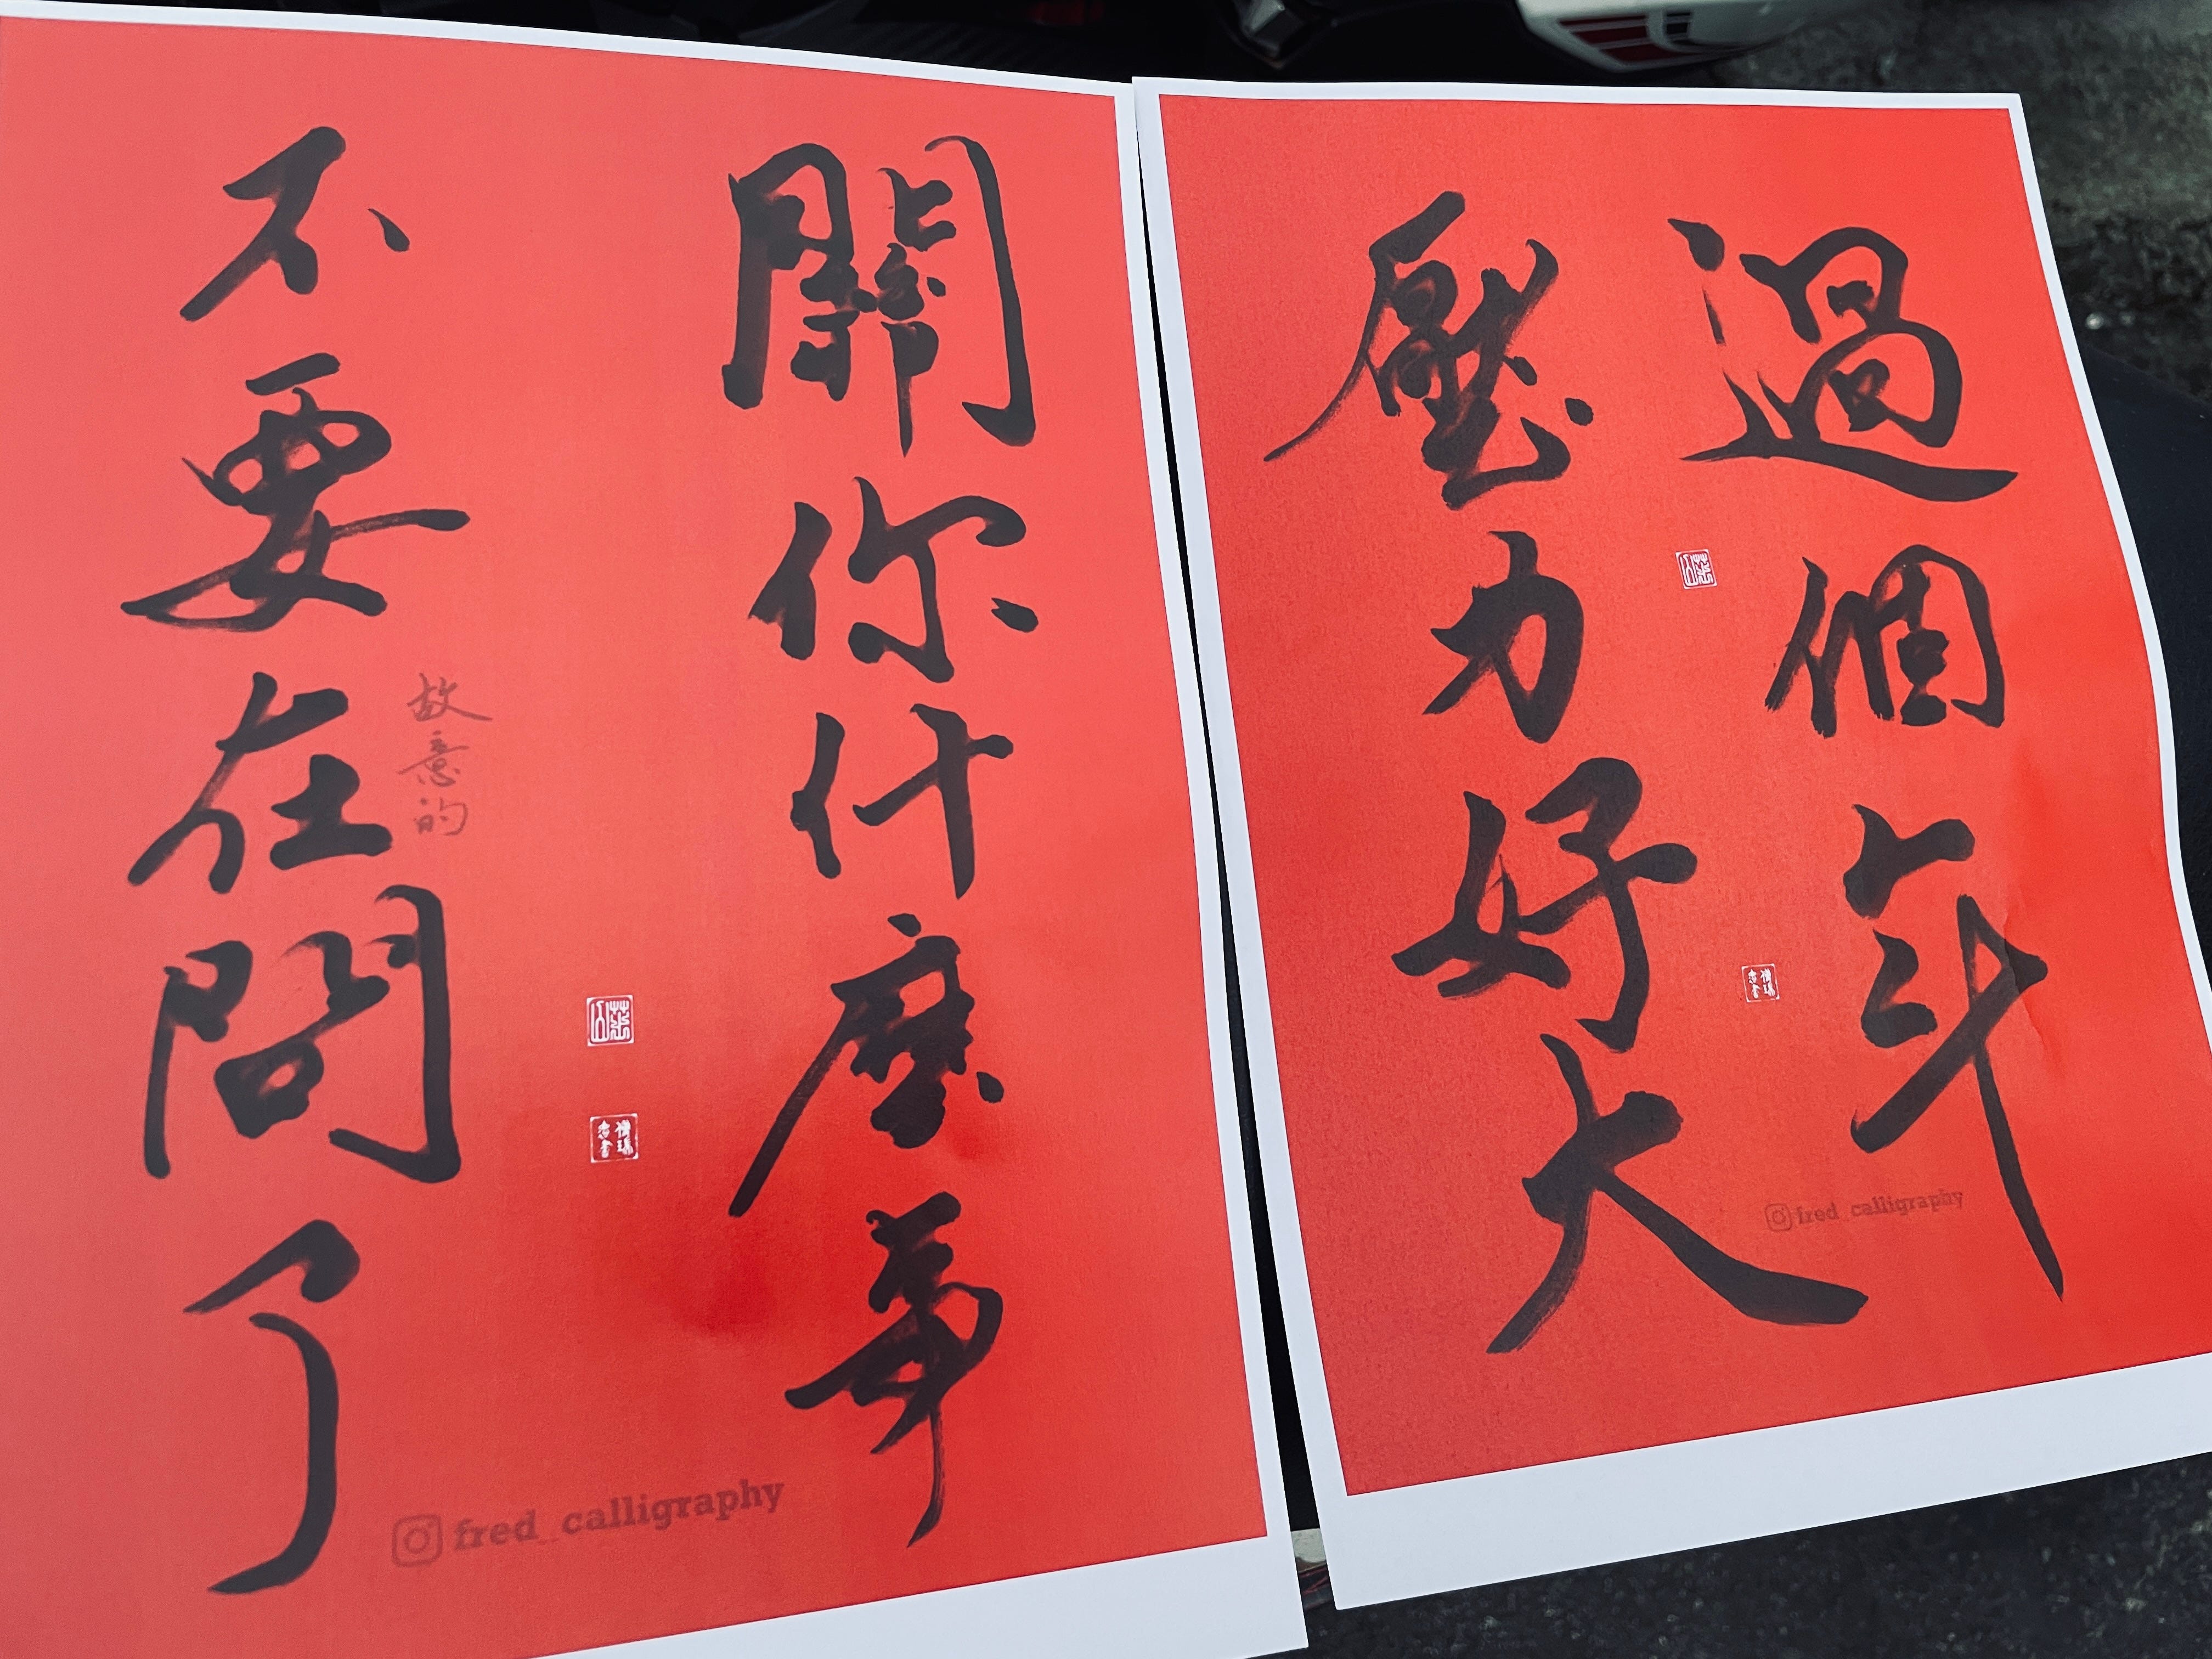 過個年
壓力好大
fred_calligraphy
關你什麼事
不要在問了
故意的
fred_calligraphy